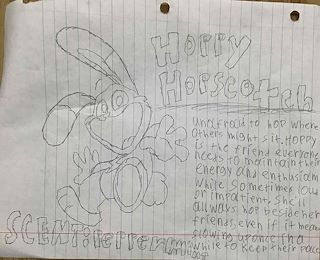 Hoppy
Hopscotch
Unafraid to hop where
others might sit. Hoppy
is the friend everyone
needs to maintain their
energy and enthusiasm
While sometimes loud
or impatient, she'll
allways hop beside her
friends, even if it means
slowing up once in a
while to keep their pace
SCENT: Pepper